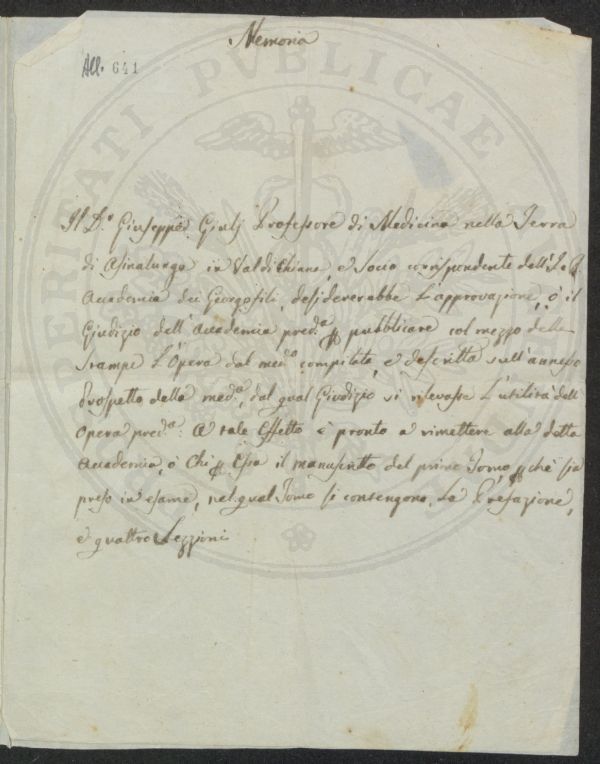 Memoria
All. 641
PROSPERITATI PUBLICAE
Il D.r Giuseppe Giulj Professore di Medicina nella Terra
di Asinalunga in Valdichiana, e Socio corrispondente dell'I. e R.
Accademia dei Georgofili, desidererebbe l'approvazione, ò il
Giudizio dell'Accademia pred.a pubblicare col mezzo delle
Stampe l'Opera dal med.o compilata, e descritta sull'annesso
Prospetto della med.a, dal qual Giudizio si rilevasse l'utilità dell'
Opera pred.a: A tale Effetto è pronto a rimettere alla detta
Accademia, ò Chi Essa il manuscritto del primo Tomo, chè sia
preso in esame, nel qual Tomo si contengono, La Prefazione,
e quattro Lezzioni